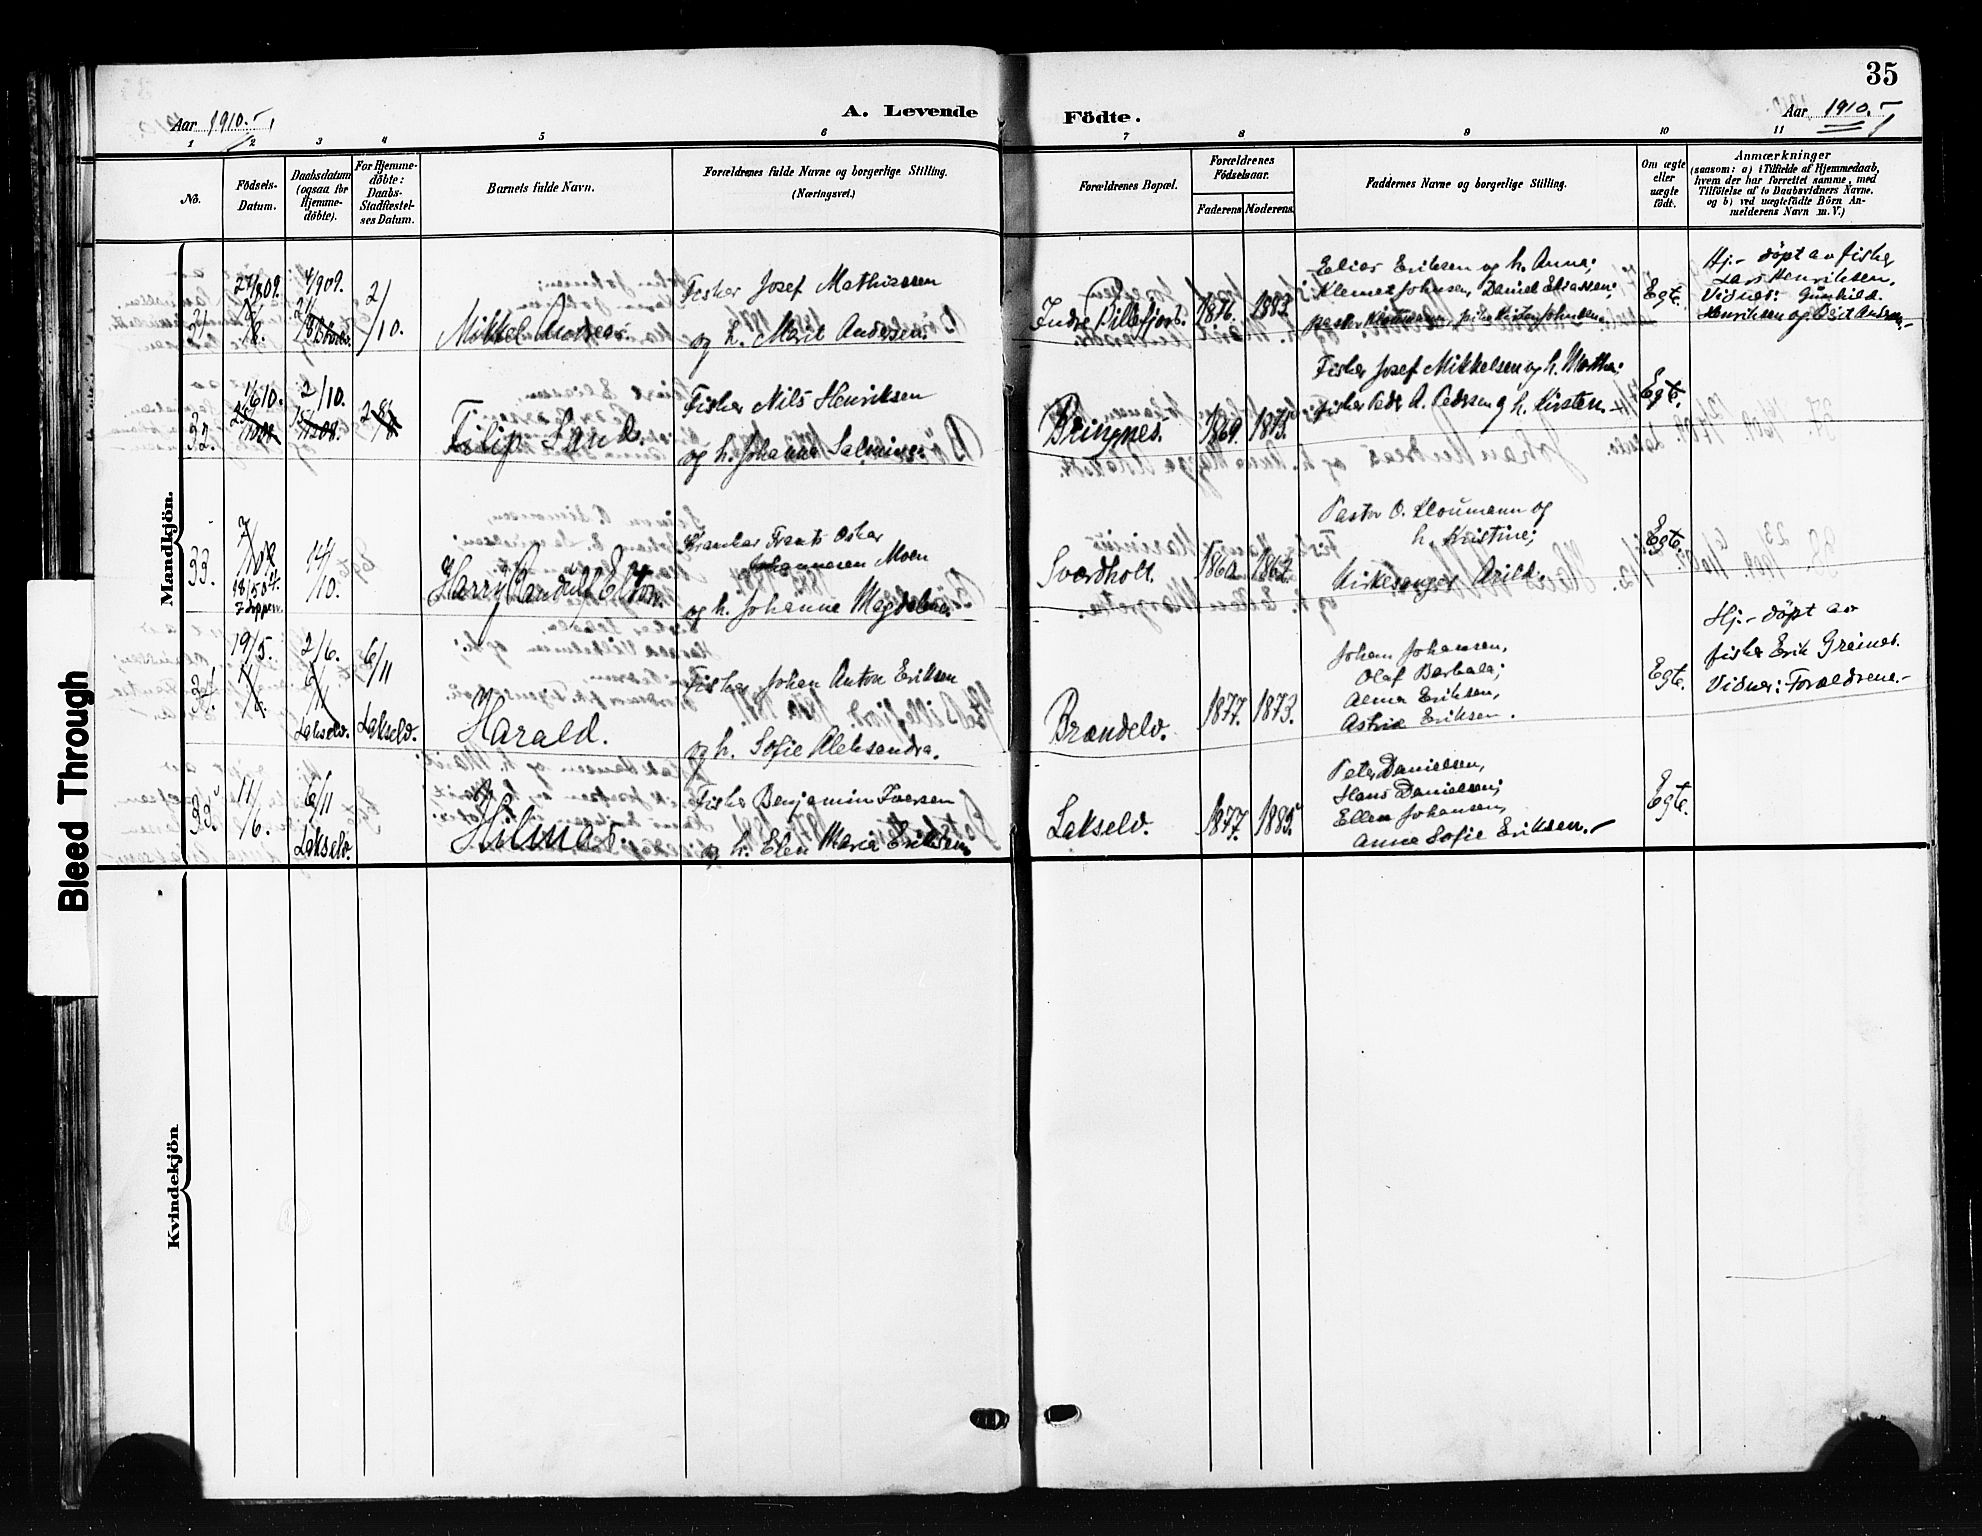 35
Aar 1910.
A. Levende
Födte.
Aar 1910.
1 2 3 4 5 6 7 8 9 10 11
No.
Födsels-
Datum.
Daabsdatum
(ogsaa for
Hjemme-
döbte).
For Hjemme-
döbte:
Daabs-
Stadfæstel-
ses Datum.
Barnets fulde Navn.
Forældrenes fulde Navne og borgerlige Stilling.
(Næringsvei.)
Forældrenes Bopæl.
Forældrenes
Födselsaar.
Faderens
Moderens.
Faddernes Navne og borgerlige Stilling.
Om ægte
eller
uægte
födt.
Anmærkninger
(saasom: a) i Tilfælde af Hjemmedaab,
hvem der har forrettet samme, med
Tilföielse af to Daabsvidners Navne.
og b) ved uægtefödte Börn An-
melderens Navn m. V.)
Mandkjön.
31.
27/8 09.
4/9 09.
2/10.
Mikkel Andreas.
Fisker Josef Mathiassen
og h. Marit Andersen.
Indre Billefjord.
1876.
1883.
Elias Eriksen og h. Anna;
Klemet Johnsen, Daniel Eliassen;
Egte.
Hj.- döpt av fisker
Lars Henriksen.
Vidner: Gunhild
Henriksen og Berit Andersen.-
32.
1/6 10.
2/10.
Filip Sand.
Fisker Nils Henriksen
og h. Johanna Salmine.
Bringnes.
1869.
1875.
Fisker Josef Mikkelsen og h. Martha;
fisker Peder A. Pedersen og h. Kirsten.-
Egte.
33.
14/10.
Harry Randulf Elton.
Oskar
Johannesen Moen
og h. Johanna Magdalena.
Sværdholt.
1862.
Pastor O. Kloumann og
h. Kristine;
Kirkesanger Arild.
Egte.
34.
19/5.
2/6.
6/11
Lakselv.
Lakselv.
Harald.
Fisker Johan Anton Eriksen
og h. Sofie Aleksandra.
Brændelv.
1877.
1873.
Johan Johansen,
Olaf Barbala;
Alma Eriksen,
Astrid Eriksen.
Egte.
Hj.- döpt av
fisker Erik Greines.
Vidner: Forældrene.-
35.
11/6.
6/11
Lakselv.
Hilmar.
Fisker Benjamin Iversen
og h. Elen Maria Eriksen.
Lakselv.
1877.
1885.
Peter Danielsen,
Hans Danielsen;
Ellen Johansen,
Anna Sofie Eriksen.-
Egte.
Kvindekjön
Bleed Through